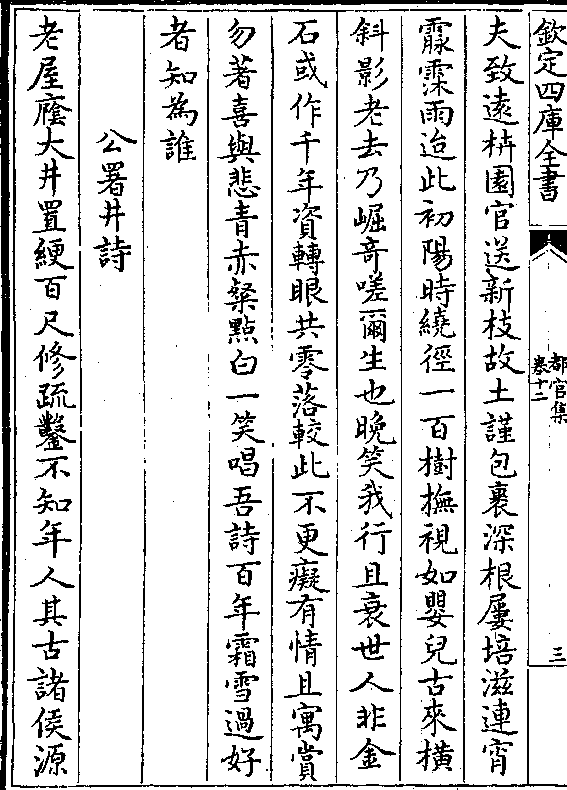 欽定四庫全書
都官集
卷十二
三
夫致遠栟園官送新枝故土謹包裹深根屢培滋連宵
霡霂雨迨此初陽時繞徑一百樹撫視如嬰兒古來橫
斜影老去乃崛奇嗟爾生也晚笑我行且衰世人非金
石或作千年資轉眼共零落較此不更癡有情且寓賞
勿著喜與悲青赤粲點白一笑唱吾詩百年霜雪過好
者知為誰
公署井詩
老屋廕大井置綆百尺修疏鑿不知年人其古諸侯源